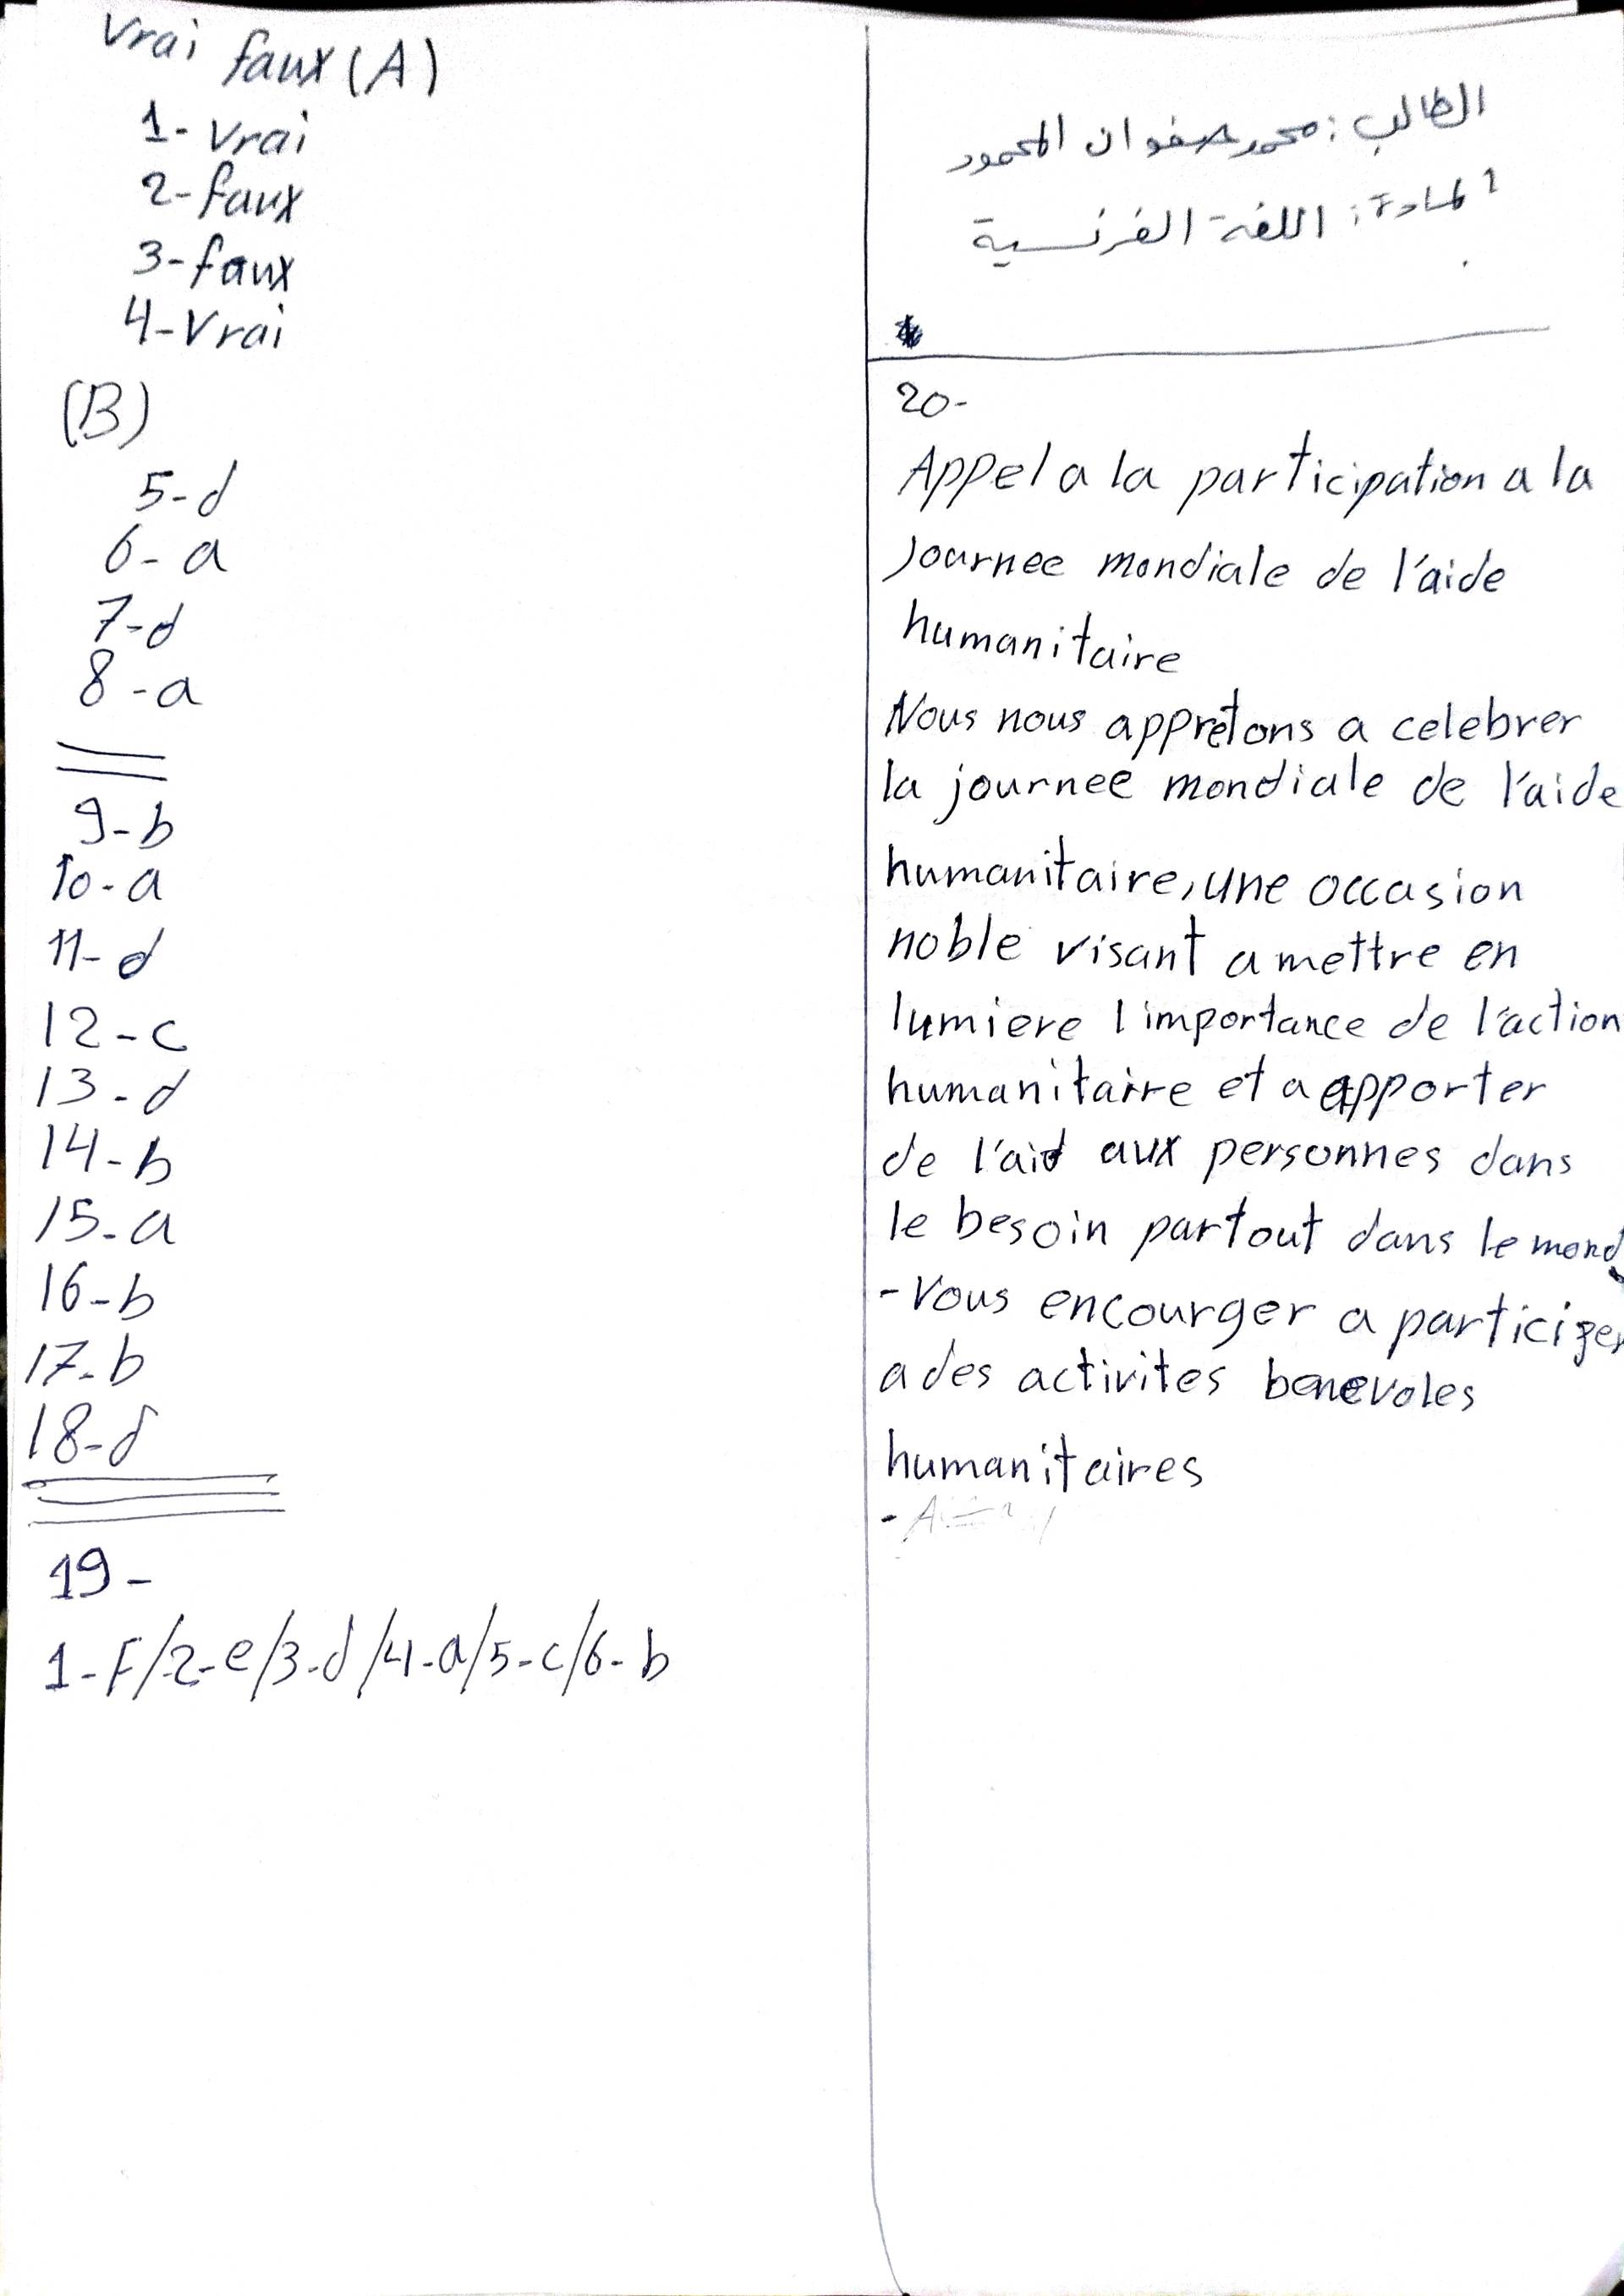 Vrai faux (A)
1- Vrai
2- faux
3- faux
4- Vrai
(B)
5-d
6-a
7-d
8-a
9-b
10-a
11-d
12-c
13-d
14-b
15-a
16-b
17-b
18-d
19-
1-F/2-e/3-d/4-a/5-c/6-b
الطالب: محمد صفوان المحمود
المادة: اللغة الفرنسية
20-
Appel a la participation a la
Journee mondiale de l'aide
humanitaire
Nous nous apprêtons a celebrer
la journee mondiale de l'aide
humanitaire, une occasion
noble visant a mettre en
lumiere l'importance de l'action
humanitaire et a apporter
de l'aid aux personnes dans
le besoin partout dans le mond
- Vous encourger a participer
a des activites benevoles
humanitaires